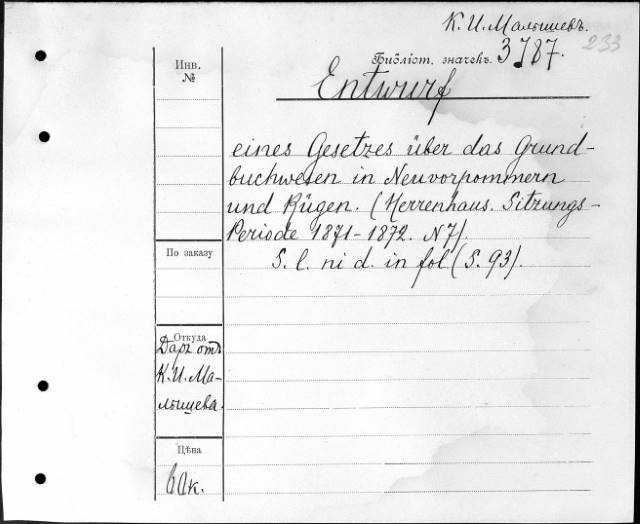 К. И. Малышевъ.
233
Инв.
№
Библіот. значекъ. 3787.
Entwurf
eines Gesetzes über das Grund-
buchwesen in Neuvorpommern
und Rügen. (Herrenhaus. Sitzungs-
Periode 1871-1872. N7).
По заказу
S. l. ni d. in fol (S. 93).
Откуда
Даръ отъ
К. И. Ма-
лышева.
Цѣна
60к.